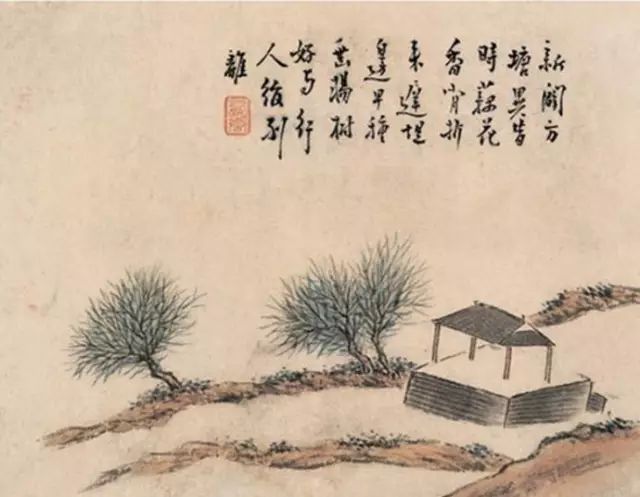 新闢方
塘異昔
時藕花
香折
來遲堤
邊早種
垂楊樹
好与行
人別
離